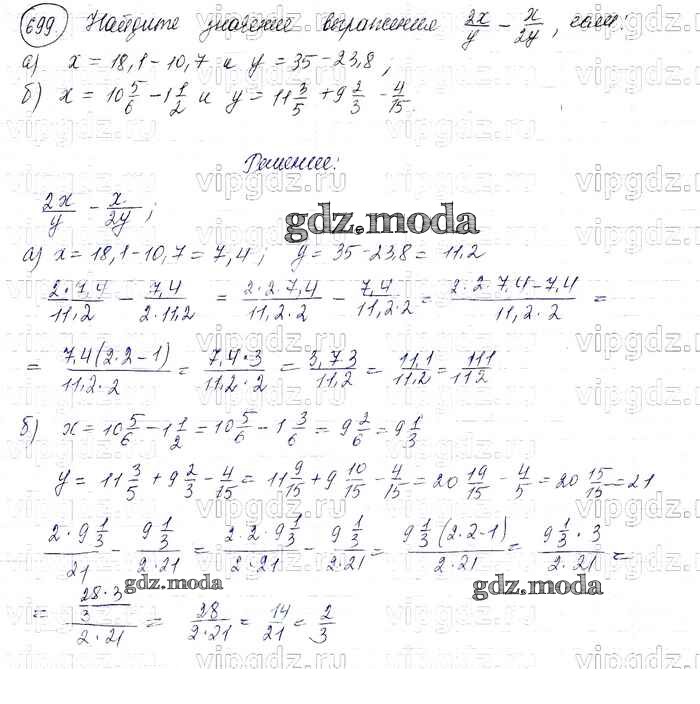 699. Найдите значение выражения 2x/y − x/2y, если:
а) x = 18,1 − 10,7 и y = 35 − 23,8;
б) x = 10 5/6 − 1 1/2 и y = 11 3/5 + 9 2/3 − 4/15.
Решение:
2x/y − x/2y;
gdz.moda
а) x = 18,1 − 10,7 = 7,4; y = 35 − 23,8 = 11,2
2·7,4/11,2 − 7,4/2·11,2 = 2·2·7,4/11,2·2 − 7,4/11,2·2 = 2·2·7,4−7,4/11,2·2 =
= 7,4(2·2−1)/11,2·2 = 7,4·3/11,2·2 = 3,7·3/11,2 = 11,1/11,2 = 111/112
б) x = 10 5/6 − 1 1/2 = 10 5/6 − 1 3/6 = 9 2/6 = 9 1/3
y = 11 3/5 + 9 2/3 − 4/15 = 11 9/15 + 9 10/15 − 4/15 = 20 19/15 − 4/5 = 20 15/15 = 21
2·9 1/3/21 − 9 1/3/2·21 = 2·2·9 1/3/2·21 − 9 1/3/2·21 = 9 1/3(2·2−1)/2·21 = 9 1/3·3/2·21 =
gdz.moda gdz.moda
= 28·3/3/2·21 = 28/2·21 = 14/21 = 2/3
vipgdz.com